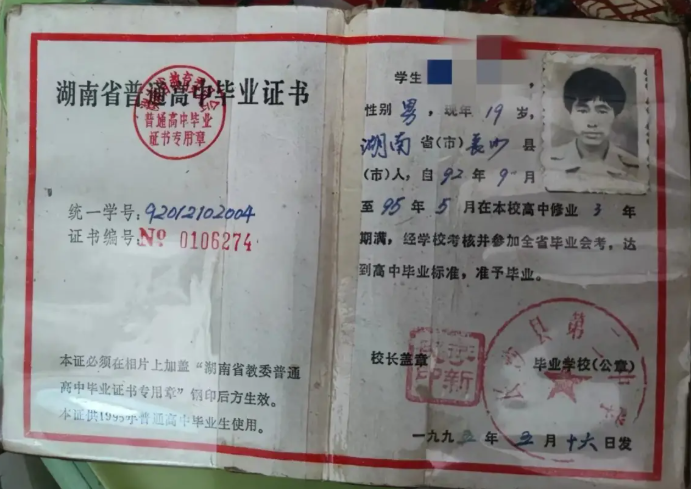 湖南省普通高中毕业证书
普通高中毕业
证书专用章
统一学号:92012102004
证书编号:№ 0106274
本证必须在相片上加盖“湖南省教委普通
高中毕业证书专用章”钢印后方生效。
本证供1995年普通高中毕业生使用。
学生
,
性别 男,现年 19 岁,
湖南 省(市) 长沙 县
(市)人,自 92 年 9 月
至 95 年 5 月在本校高中修业 3 年
期满,经学校考核并参加全省毕业会考,达
到高中毕业标准,准予毕业。
校长盖章
毕业学校(公章)
长沙县第
一九九五年 五 月 十六 日发